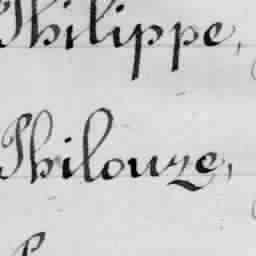 Philippe,
Philouze,